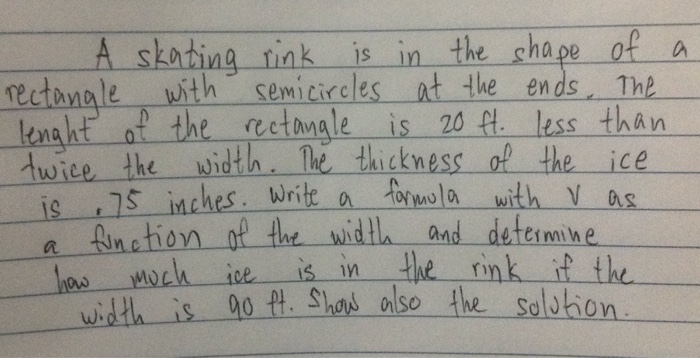 A skating rink is in the shape of a
rectangle with semicircles at the ends. The
lenght of the rectangle is 20 ft. less than
twice the width. The thickness of the ice
is .75 inches. Write a formula with V as
a function of the width and determine
how much ice is in the rink if the
width is 90 ft. Show also the solution.